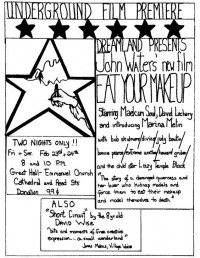 UNDERGROUND FILM PREMIERE
DREAMLAND PRESENTS
John Waters' new film
EAT YOUR MAKEUP
Starring Maelcum Soul, David Lochary
and introducing Marina Melin
with bob skidmore/divine/judy boutin/
berenica/george figgs/howard gruber/
and the child star Lizzy Temple Black
"The story of a deranged governess and
her lover who kidnaps models and
forces them to eat their makeup
and model themselves to death"
TWO NIGHTS ONLY!!
Fri - Sat Feb 23rd, 24th
8 and 10 P.M.
Great Hall - Emmanuel Church
Cathedral and Read Sts
Donation 99¢
ALSO
"Short Circuit" by the 8 yr old
David Wise
"bits and moments of fine creative
expression... a small wonderland"
Jonas Mekas, Village Voice